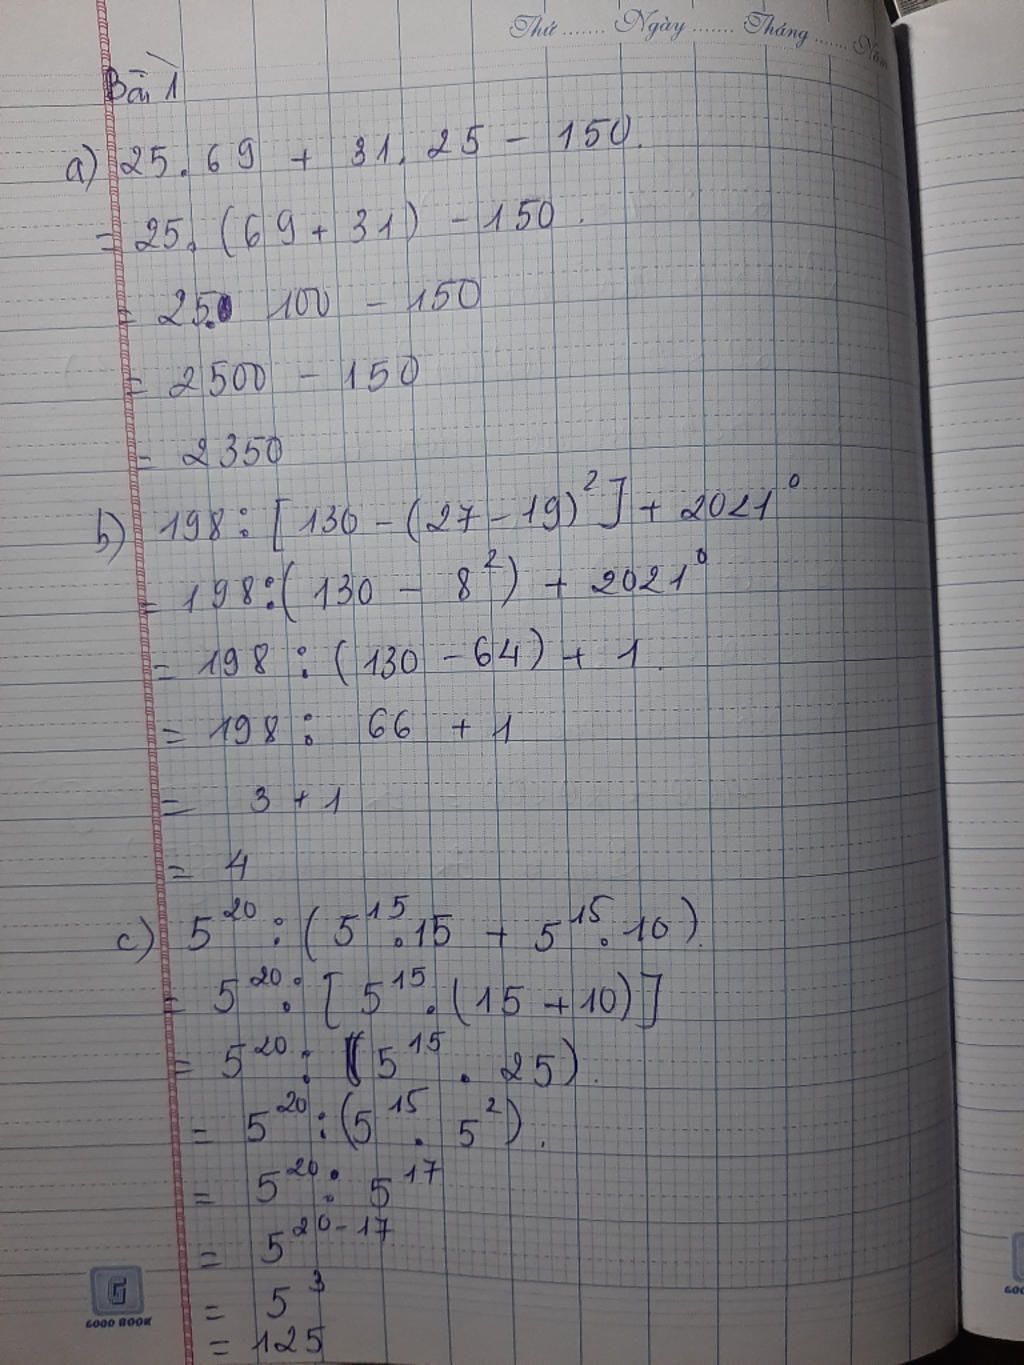 Thứ ....... Ngày ....... Tháng ....... Năm
Bài 1
a) 25 . 69 + 31 . 25 - 150.
= 25. (69 + 31) - 150.
= 25. 100 - 150
= 2500 - 150
= 2350
b) 198 : [ 130 - (27 - 19)² ] + 2021⁰
= 198 : ( 130 - 8² ) + 2021⁰
= 198 : (130 - 64) + 1.
= 198 : 66 + 1
= 3 + 1
= 4
c) 5²⁰ : ( 5¹⁵ . 15 + 5¹⁵ . 10 ).
= 5²⁰ : [ 5¹⁵ . (15 + 10) ]
= 5²⁰ : (5¹⁵ . 25).
= 5²⁰ : (5¹⁵ . 5²).
= 5²⁰ : 5¹⁷
= 5²⁰⁻¹⁷
= 5³
= 125
G
GOOD BOOK